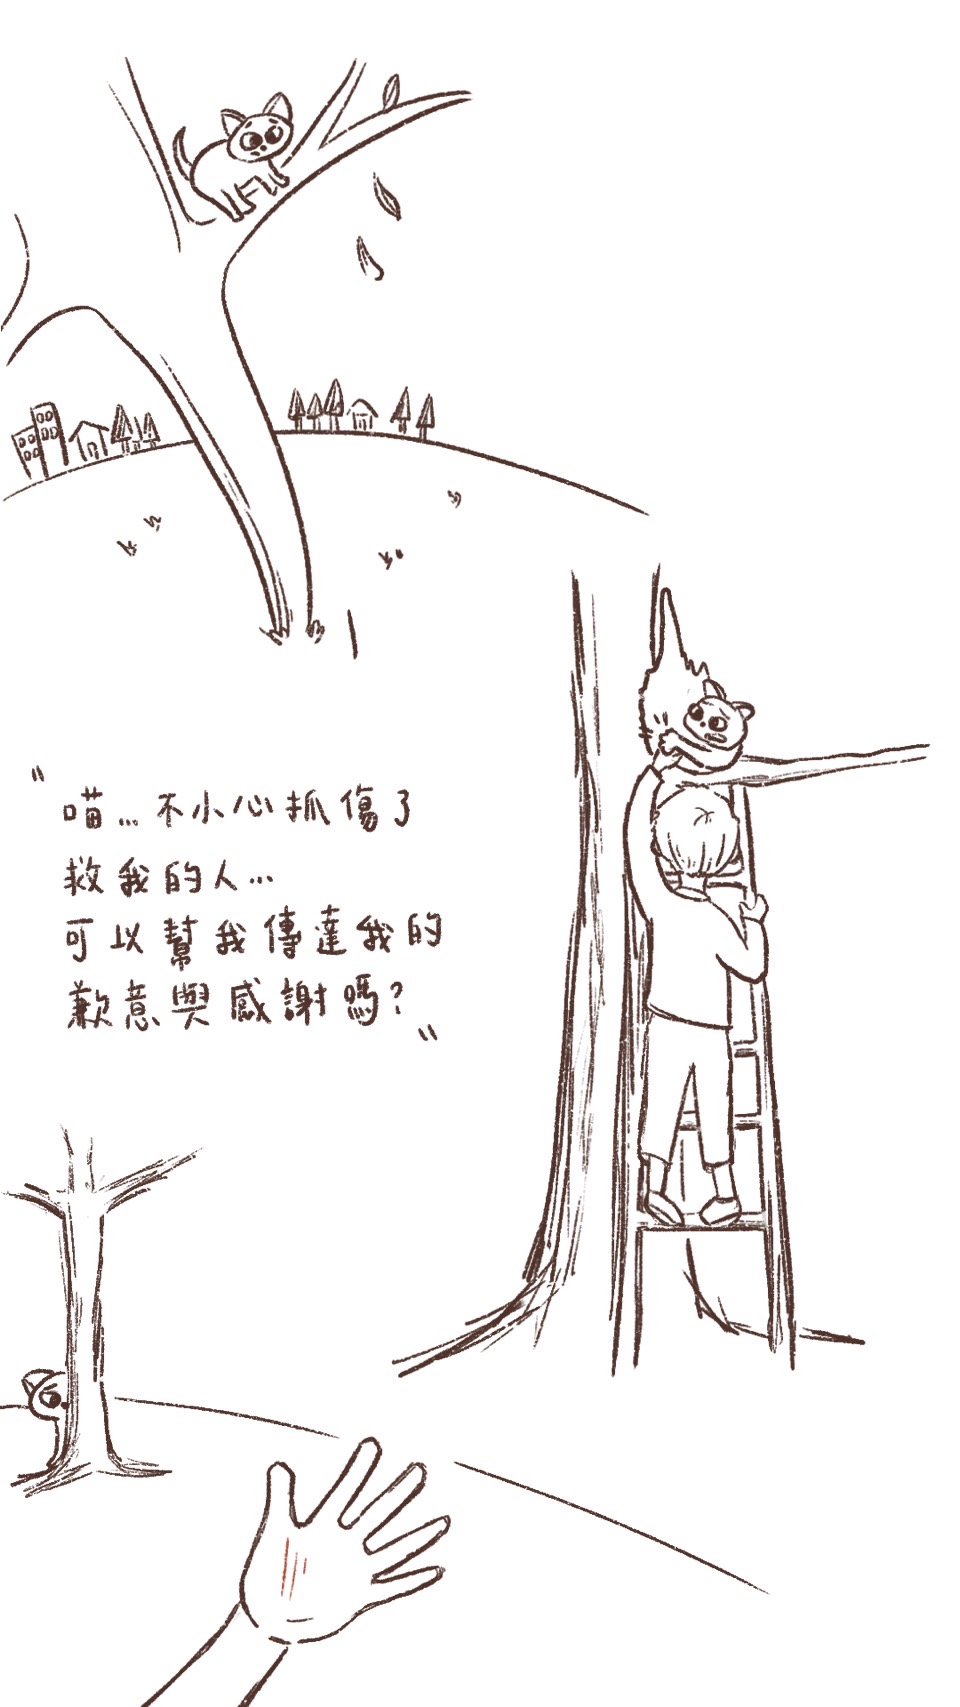 "喵...不小心抓傷了
救我的人...
可以幫我傳達我的
歉意與感謝嗎?"